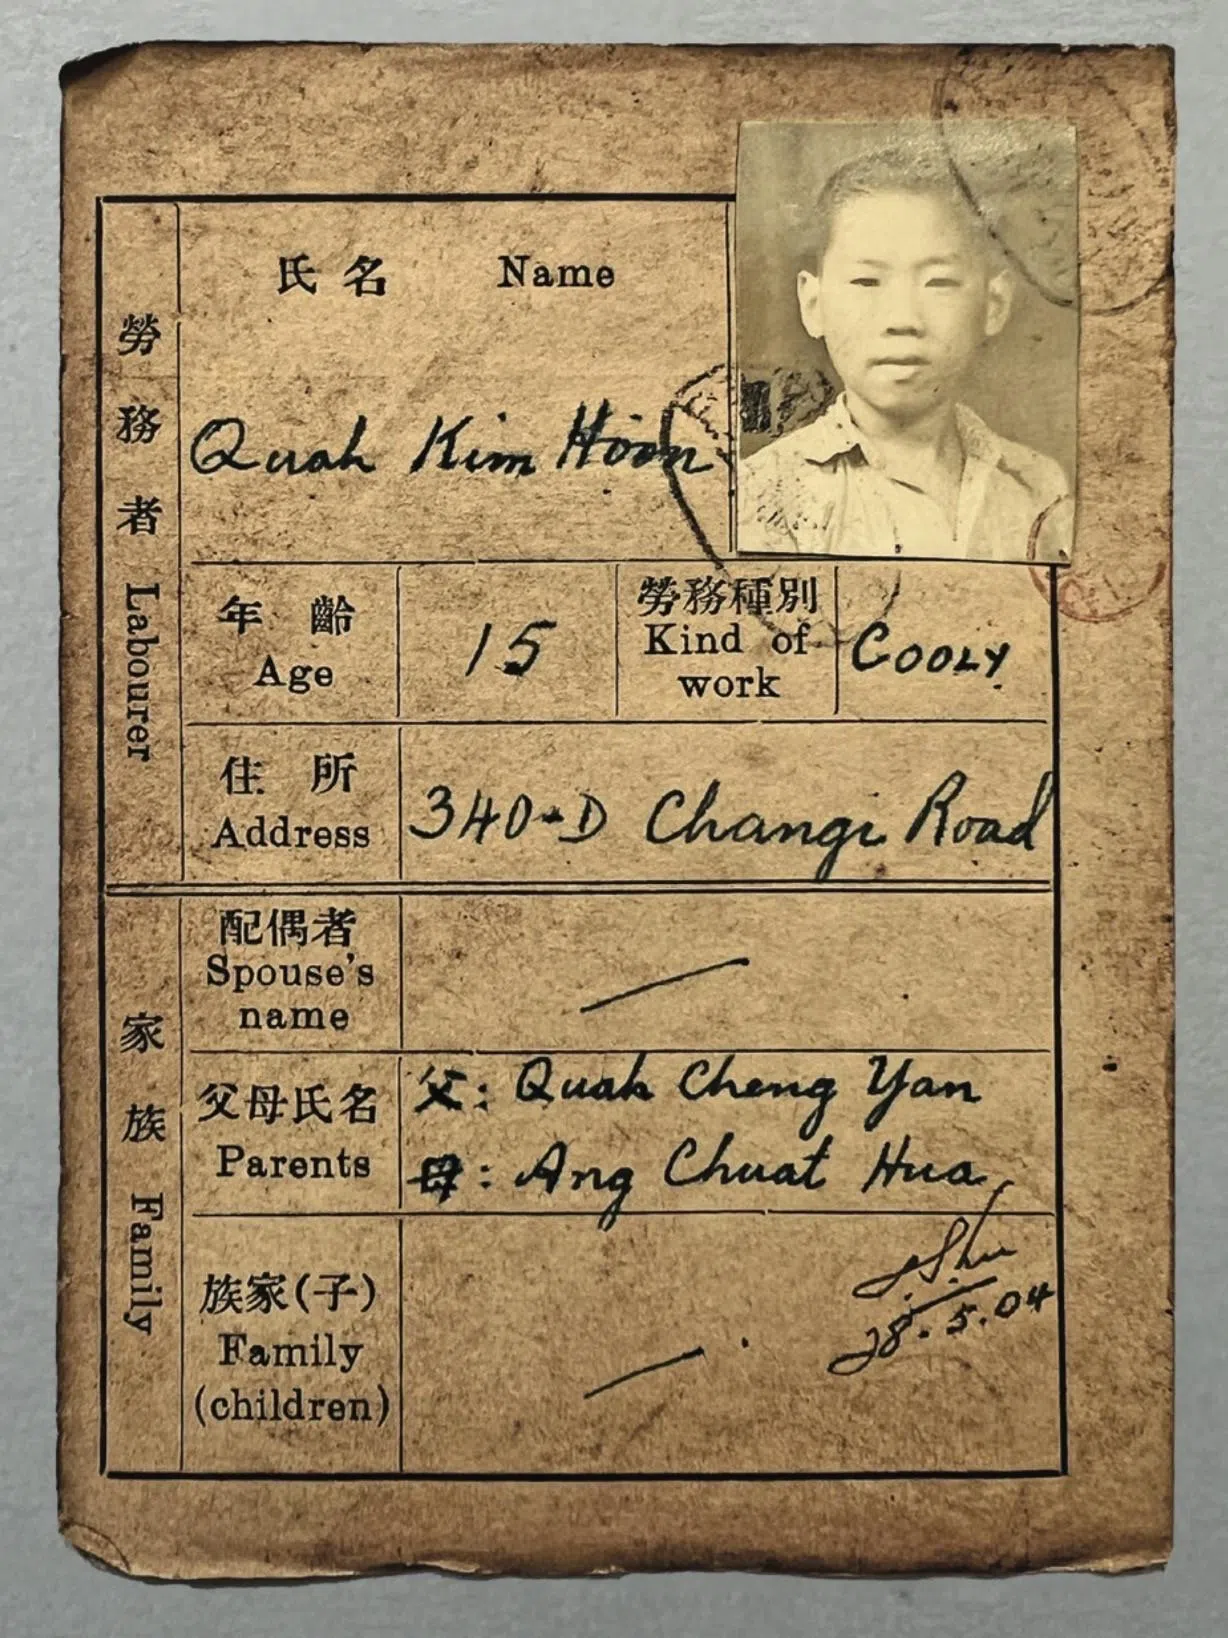 氏名 Name
勞務者 Labourer
Quah Kim Hoon
年齡
Age
15
勞務種別
Kind of
work
COOLY
住所
Address
340-D Changi Road
家族 Family
配偶者
Spouse's
name
父母氏名
Parents
父: Quah Cheng Yan
母: Ang Chuat Hua
族家(子)
Family
(children)
28.5.04